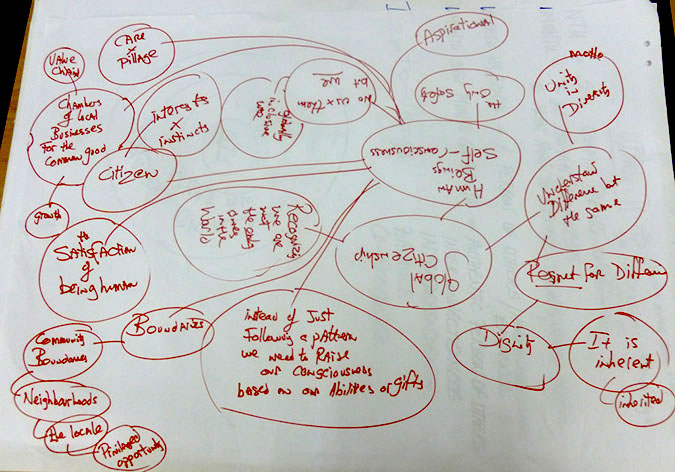 Aspirational
CARE
x
pillage
VALUE
Chain
Chambers
of local
Businesses
for the
common good
Interests
x
instincts
No us x them
but we
globally
inclusive
the
only safety
motto
Unity
in
Diversity
CITIZEN
HUMAN
BEINGS
SELF-CONSCIOUSNESS
Understand
Difference but
the same
growth
the
SATISFACTION
of
being human
Recognizing
we are
not
the only
ones
in the
World
GLOBAL
CITIZENSHIP
Respect for Differen
BOUNDARIES
Community
Boundaries
instead of Just
following a pattern
we need to RAISE
our consciousness
based on our Abilities or gifts
Dignity
It is
inherent
inherited
Neighbourhoods
the locale
Privileged
opportunity